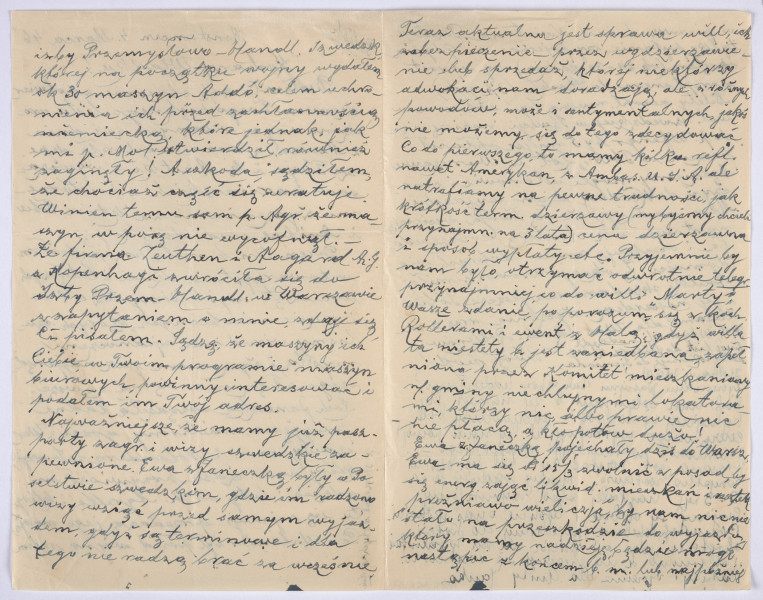 izby Przemysłowo-Handl. Szwedzk.
której na początku wojny wydałem
ok 30 maszyn Addo, celem uchro-
nienia ich przed zachłannością
niemiecką, które jednak, jak
mi p. stwierdził również
zaginęły! A szkoda, sądziłem,
że chociaż część się uratuje.
Winien temu sam p. Agr. że ma-
szyn, w porę nie wycofnął. -
Że firma Zeuthen i Aagard A.G.
z Kopenhagi zwróciła się do
Izby Przem-Handl. w Warszawie
z zapytaniem o mnie, zdaje się
Ci pisałem. Sądzę, że maszyny ich
Ciebie w Twoim programie maszyn
biurowych, powinny interesować i
podałem im Twój adres.
Najważniejsze, że mamy już pasz-
porty zagr. i wizy szwedzkie za-
pewnione. Ewa z Janeczką były w Po-
selstwie szwedzkim, gdzie im radzono
wizy wziąć przed samym wyjaz-
dem, gdyż są terminowe i dla
tego nie radzą brać za wcześnie
Teraz aktualna jest sprawa will, ich
zabezpieczenie przez wydzierżawie-
nie lub sprzedaż, której niektórzy
adwokaci nam doradzają, ale z różnych
powodów, może i sentymentalnych, jakoś
nie możemy się do tego zdecydować.
Co do pierwszego, to mamy kilka refl.
nawet Amerykan, z Ambas. U.S.A. ale
natrafiamy na pewne trudności, jak
krótkość term. dzierżawy (my byśmy chcieli
przynajmn. na 3 lata) cena dzierżawna
i sposób wypłaty etc. Przyjemnie by
nam było, otrzymać odwrotnie telegr.
przynajmniej co do willi Marty
Wasze zdanie, po porozum. się z
Rollerami i ewent. z Halą, gdyż willa
ta niestety b. jest zaniedbana, zapeł-
niona przez Komitet mieszkaniowy
gminy niechlujnymi lokatora-
mi, którzy nic, albo prawie nic
nie płacą, a kłopotów dużo.
Ewa z Janeczką pojechały dziś do Warsz.
Ewa ma się d. 15/3 zwolnić z posady, by
się energ. zająć likwid. mieszkań i
by nam nic nie
stało na przeszkodzie do wyjazdu,
który mamy nadzieję będzie mógł
nastąpić z końcem b. m. lub najpóźniej